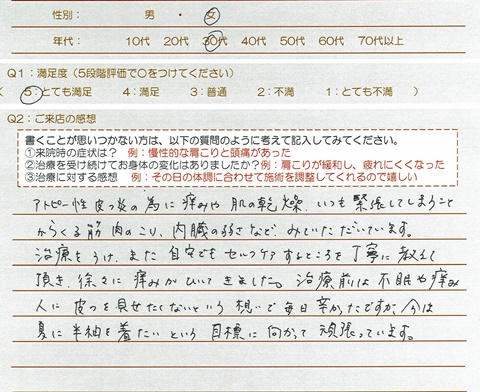 性別： 男 ・ 女
年代： 10代 20代 30代 40代 50代 60代 70代以上
Q1：満足度（5段階評価で〇をつけてください）
（ 5：とても満足 4：満足 3：普通 2：不満 1：とても不満 ）
Q2：ご来店の感想
書くことが思いつかない方は、以下の質問のように考えて記入してみてください。
①来院時の症状は？ 例：慢性的な肩こりと頭痛があった
②治療を受け続けてお身体の変化はありましたか？例：肩こりが緩和し、疲れにくくなった
③治療に対する感想 例：その日の体調に合わせて施術を調整してくれるので嬉しい
アトピー性皮フ炎の為に痒みや肌の乾燥、いつも緊張してしまうこと
からくる筋肉のこり、内臓の弱さなど、みていただいています。
治療をうけ、また自宅でもセルフケアするところを丁寧に教えて
頂き、徐々に痒みがひいてきました。治療前は不眠や痒み
人に皮フを見せたくないという想いで毎日辛かったですが、今は
夏に半袖を着たいという目標に向かって頑張っています。